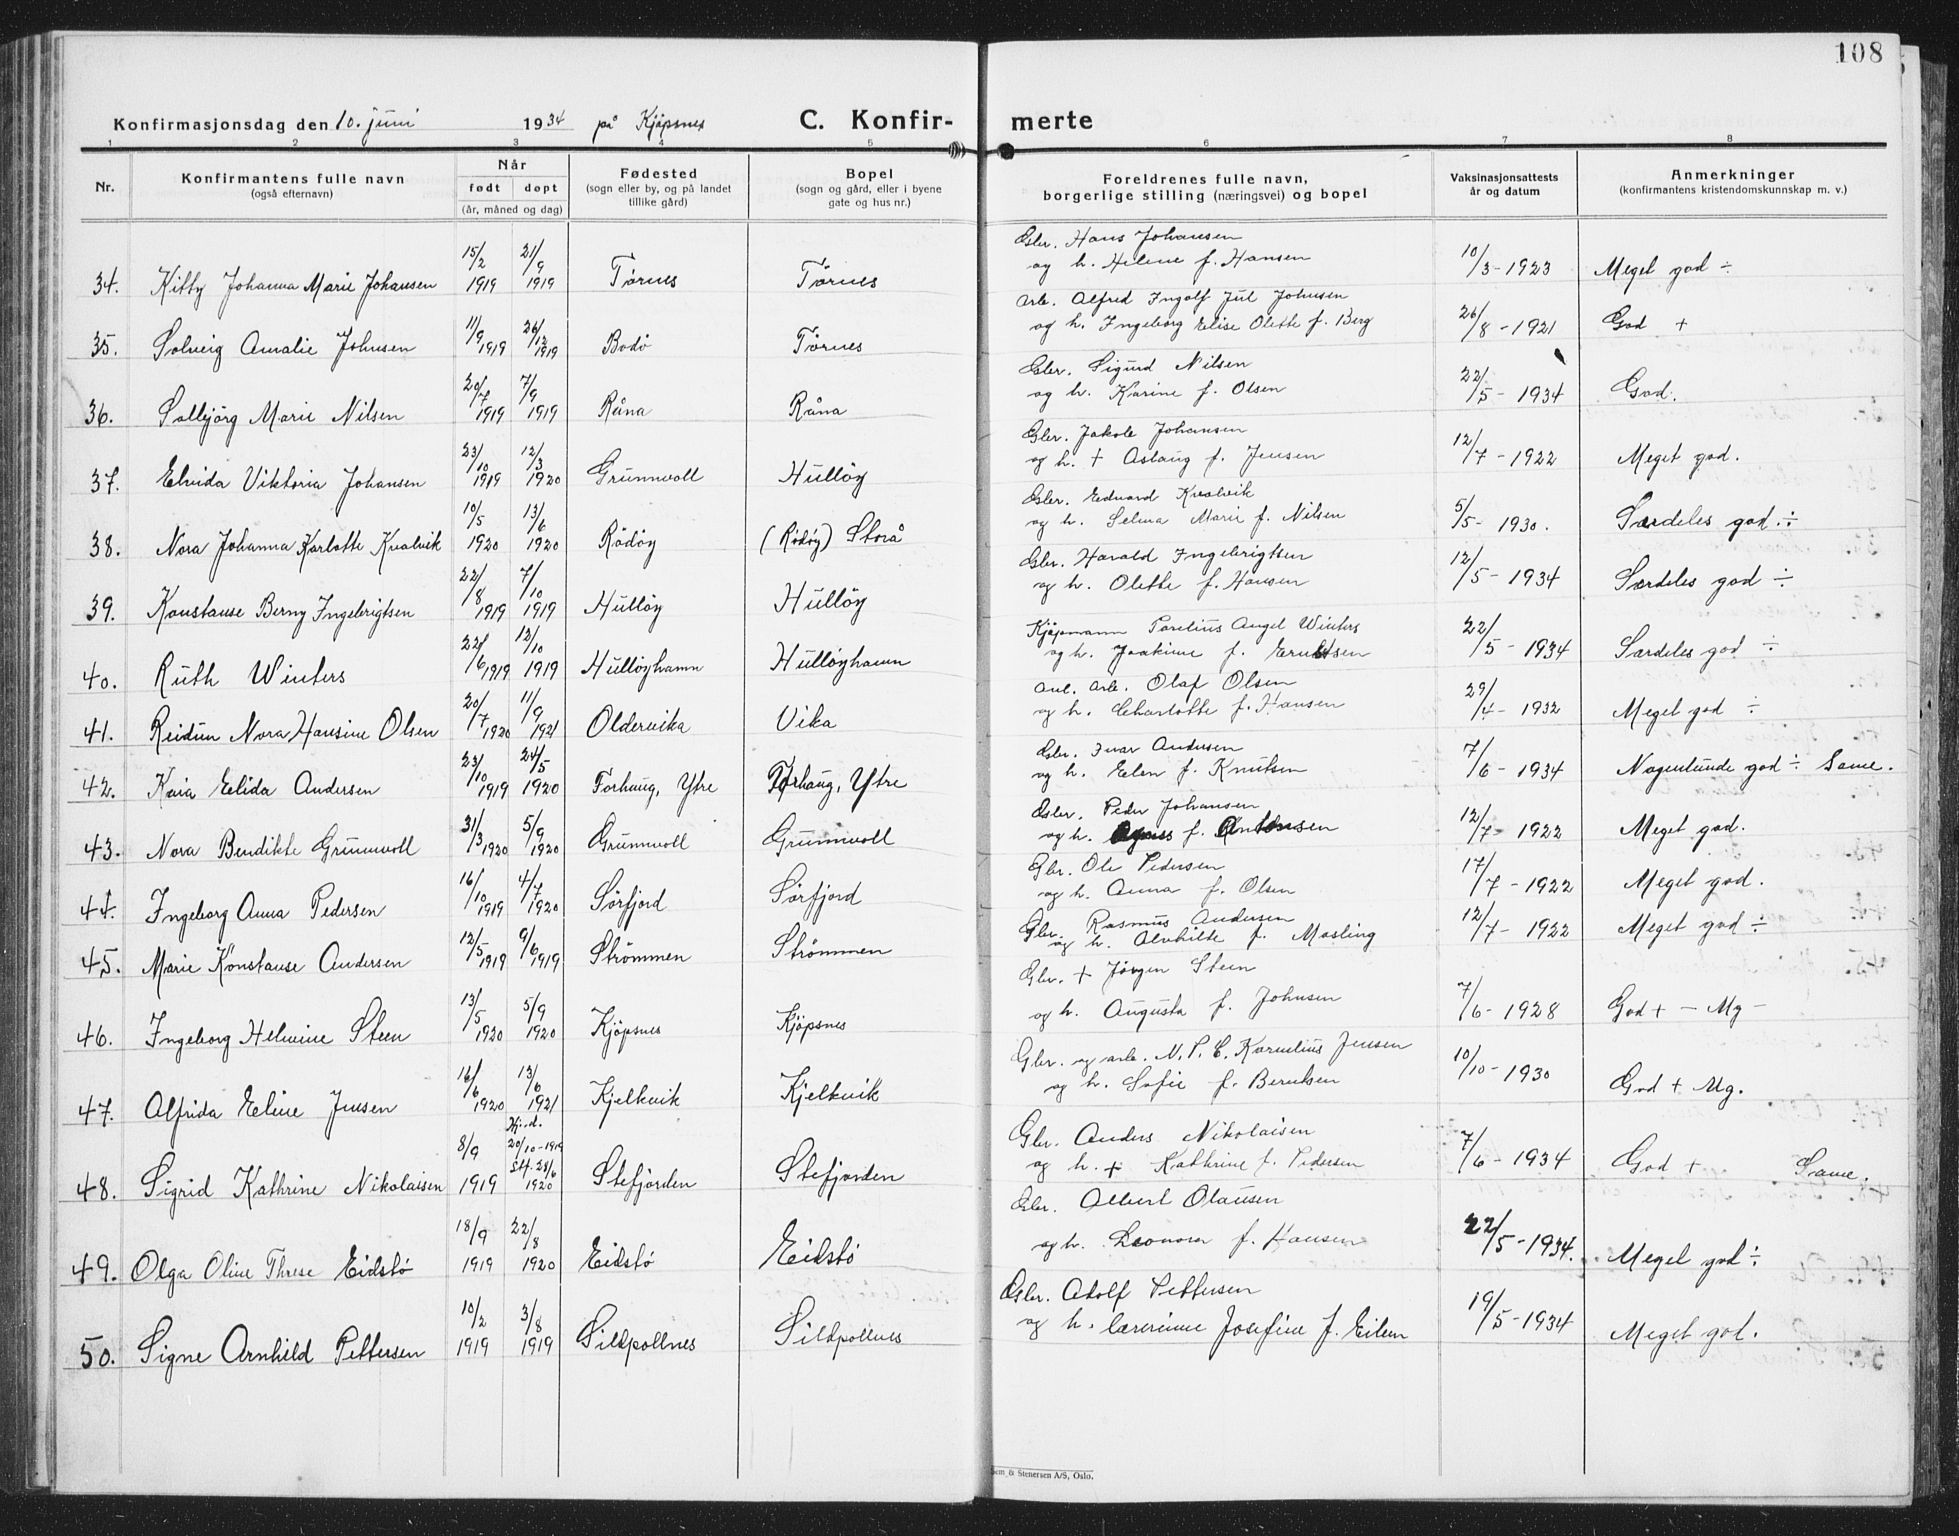 108
Konfirmasjonsdag den 10. juni 1934 på Kjöpsnes C. Konfir- merte
1 2 3 4 5 6 7 8
Nr. Konfirmantens fulle navn (også efternavn) Når født døpt (år, måned og dag) Fødested (sogn eller by, og på landet tillike gård) Bopel (sogn og gård, eller i byene gate og hus nr.) Foreldrenes fulle navn, borgerlige stilling (næringsvei) og bopel Vaksinasjonsattests år og datum Anmerkninger (konfirmantens kristendomskunnskap m. v.)
34. Kitty Johanna Marie Johansen 15/2 1919 21/9 1919 Tørnes Tørnes Gbr. Hans Johansen og h. Helene f. Hansen 10/3-1923 Meget god ÷
35. Solveig Amalie Johnsen 11/9 1919 26/12 1919 Bodö Tørnes Arb. Alfred Ingolf Jul Johnsen og h. Ingeborg Elise Olette f. Berg 26/8-1921 God +
36. Solbjörg Marie Nilsen 20/7 1919 7/9 1919 Råna Råna Gbr. Sigurd Nilsen og h. Karine f. Olsen 22/5-1934 God.
37. Elvida Viktoria Johansen 23/10 1919 12/3 1920 Grunnvoll Hullöy Gbr. Jakob Johansen og h. + Aslaug f. Jensen 12/7-1922 Meget god.
38. Nora Johanna Karlotte Kvalvik 10/5 1920 13/6 1920 Rödöy (Rödöy) Storå Gbr. Edvard Kvalvik og h. Selma Marie f. Nilsen 5/5-1930. Særdeles god ÷
39. Konstanse Berny Ingebrigtsen 22/8 1919 7/10 1919 Hullöy Hullöy Gbr. Harald Ingebrigtsen og h. Olette f. Hansen 12/5-1934 Særdeles god ÷
40. Ruth Winters 22/6 1919 12/10 1919 Hullöyhamn Hullöyhamn Kjöpmann Angel Winters og h. Joakime f. Erntsen 22/5-1934 Særdeles god ÷
41. Reidun Nora Hansine Olsen 20/7 1920 11/9 1921 Oldervika Vika Anl. arb. Olaf Olsen og h. Charlotte f. Hansen 29/4-1932 Meget god ÷
42. Kaia Elida Andersen 23/10 1919 24/5 1920 Forhaug, Ytre Forhaug, Ytre Gbr. Ivar Andersen og h. Elen f. Knutsen 7/6-1934 Nogenlunde god ÷ Same.
43. Nora Bendikte Grunnvoll 31/3 1920 5/9 1920 Grunnvoll Grunnvoll Gbr. Peder Johansen og h. Agnes f. Antonsen 12/7-1922 Meget god.
44. Ingeborg Anna Pedersen 16/10 1919 4/7 1920 Sörfjord Sörfjord Gbr. Ole Pedersen og h. Anna f. Olsen 17/7-1922 Meget god.
45. Marie Konstanse Andersen 12/5 1919 9/6 1919 Strömmen Strömmen Gbr. Rasmus Andersen og h. Alvhilde f. Mosling 12/7-1922 Meget god ÷
46. Ingeborg Helmine Steen 13/5 1920 5/9 1920 Kjöpsnes Kjöpsnes Gbr. + Jørgen Steen og h. Augusta f. Johnsen 7/6-1928 God + - Mg -
47. Alfrida Eline Jensen 16/6 1920 13/6 1921 Kjelkvik Kjelkvik Gbr. og arb. N. P. C. Kornelius Jensen og h. Sofie f. Berntsen 10/10-1930 God + Mg.
48. Sigrid Kathrine Nikolaisen 8/9 1919 Hj. d. 20/10-1919 Stf. 28/6 1920 Stefjorden Stefjorden Gbr. Anders Nikolaisen og h. + Kathrine f. Pedersen 7/6-1934 God + Same.
49. Olga Oline Threse Eidstö 18/9 1919 22/8 1920 Eidstö Eidstö Gbr. Albert Olausen og h. Leonora f. Hansen 22/5-1934. Meget god ÷
50. Signe Arnhild Pettersen 10/2 1919 3/8 1919 Sildpollnes Sildpollnes Gbr. Adolf Pettersen og h. lærerinne Josefine f. Eilem 19/5-1934 Meget god.
Sem & Stenersen A/S, Oslo.